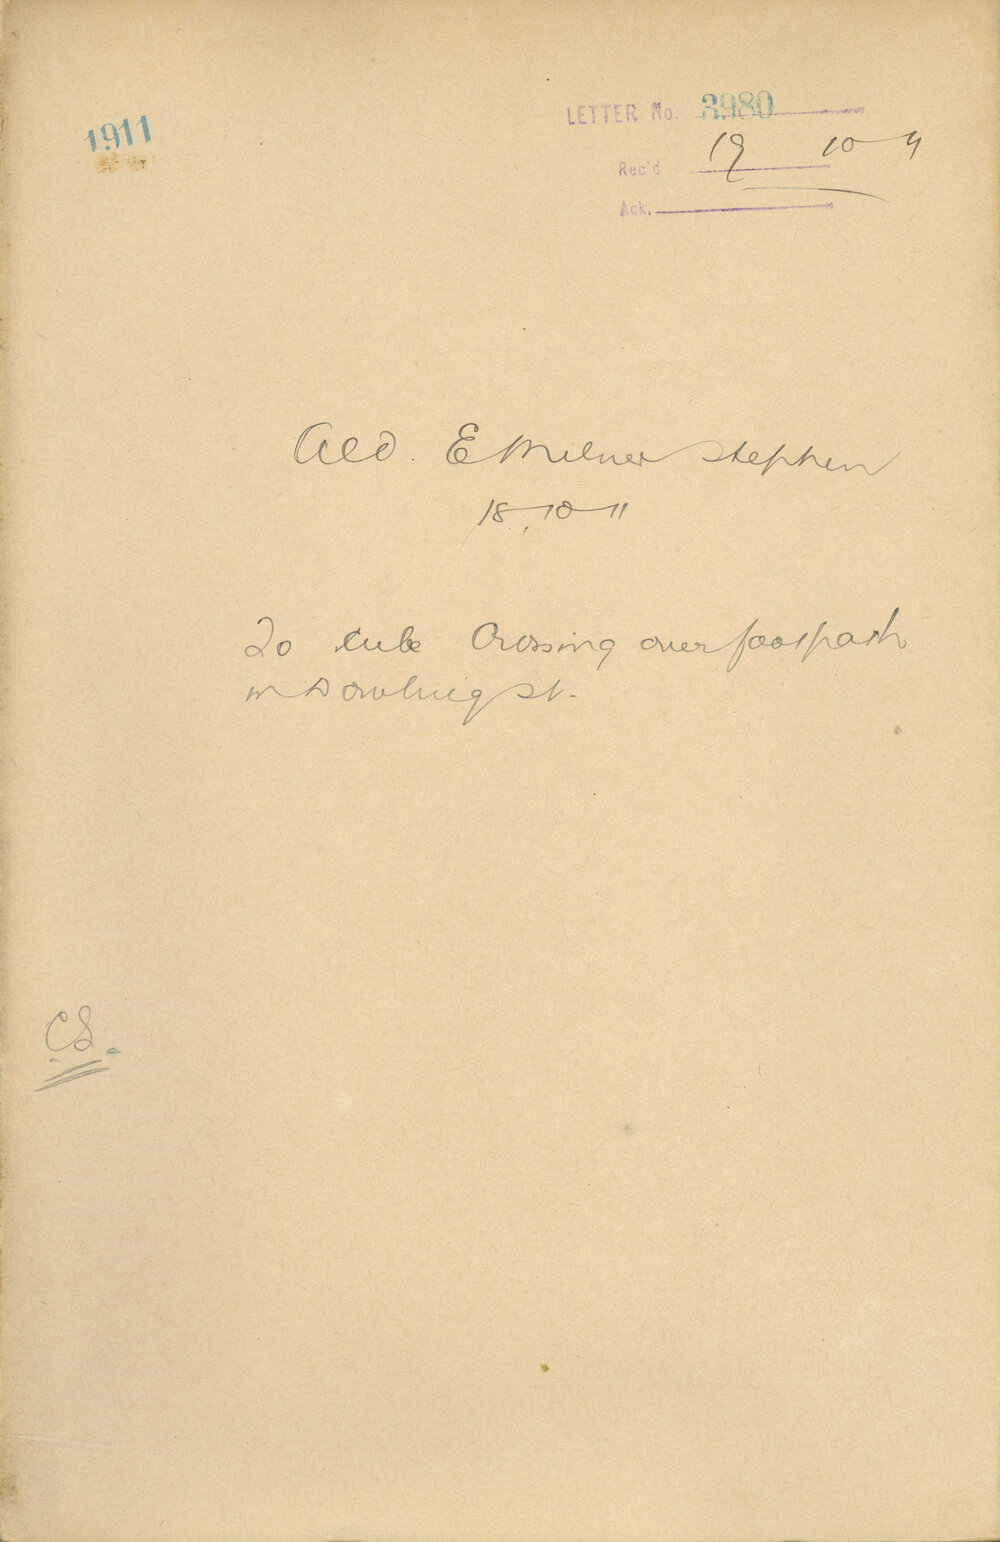 1911
LETTER No. 3980
Rec'd 19 10 11
Ack.
Ald. E Milner Stephen
18-10-11
To cube Crossing over footpath
in Dowling St.
C.S.